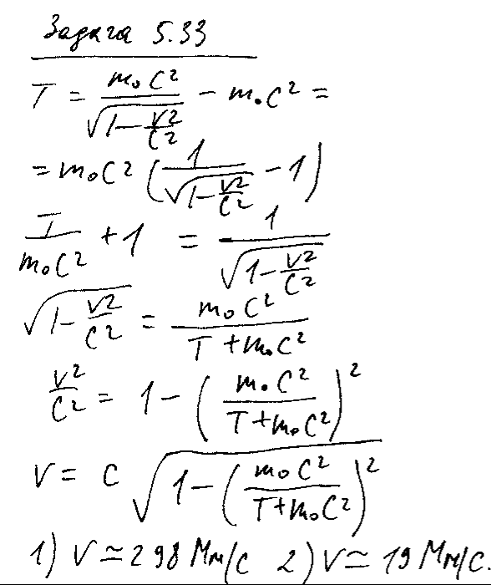 Задача 5.33
T = m₀c² / √(1 − v²/c²) − m₀c² =
= m₀c² (1 / √(1 − v²/c²) − 1)
T / m₀c² + 1 = 1 / √(1 − v²/c²)
√(1 − v²/c²) = m₀c² / (T + m₀c²)
v²/c² = 1 − (m₀c² / (T + m₀c²))²
v = c √(1 − (m₀c² / (T + m₀c²))²)
1) v ≃ 298 Мм/с 2) v ≃ 19 Мм/с.